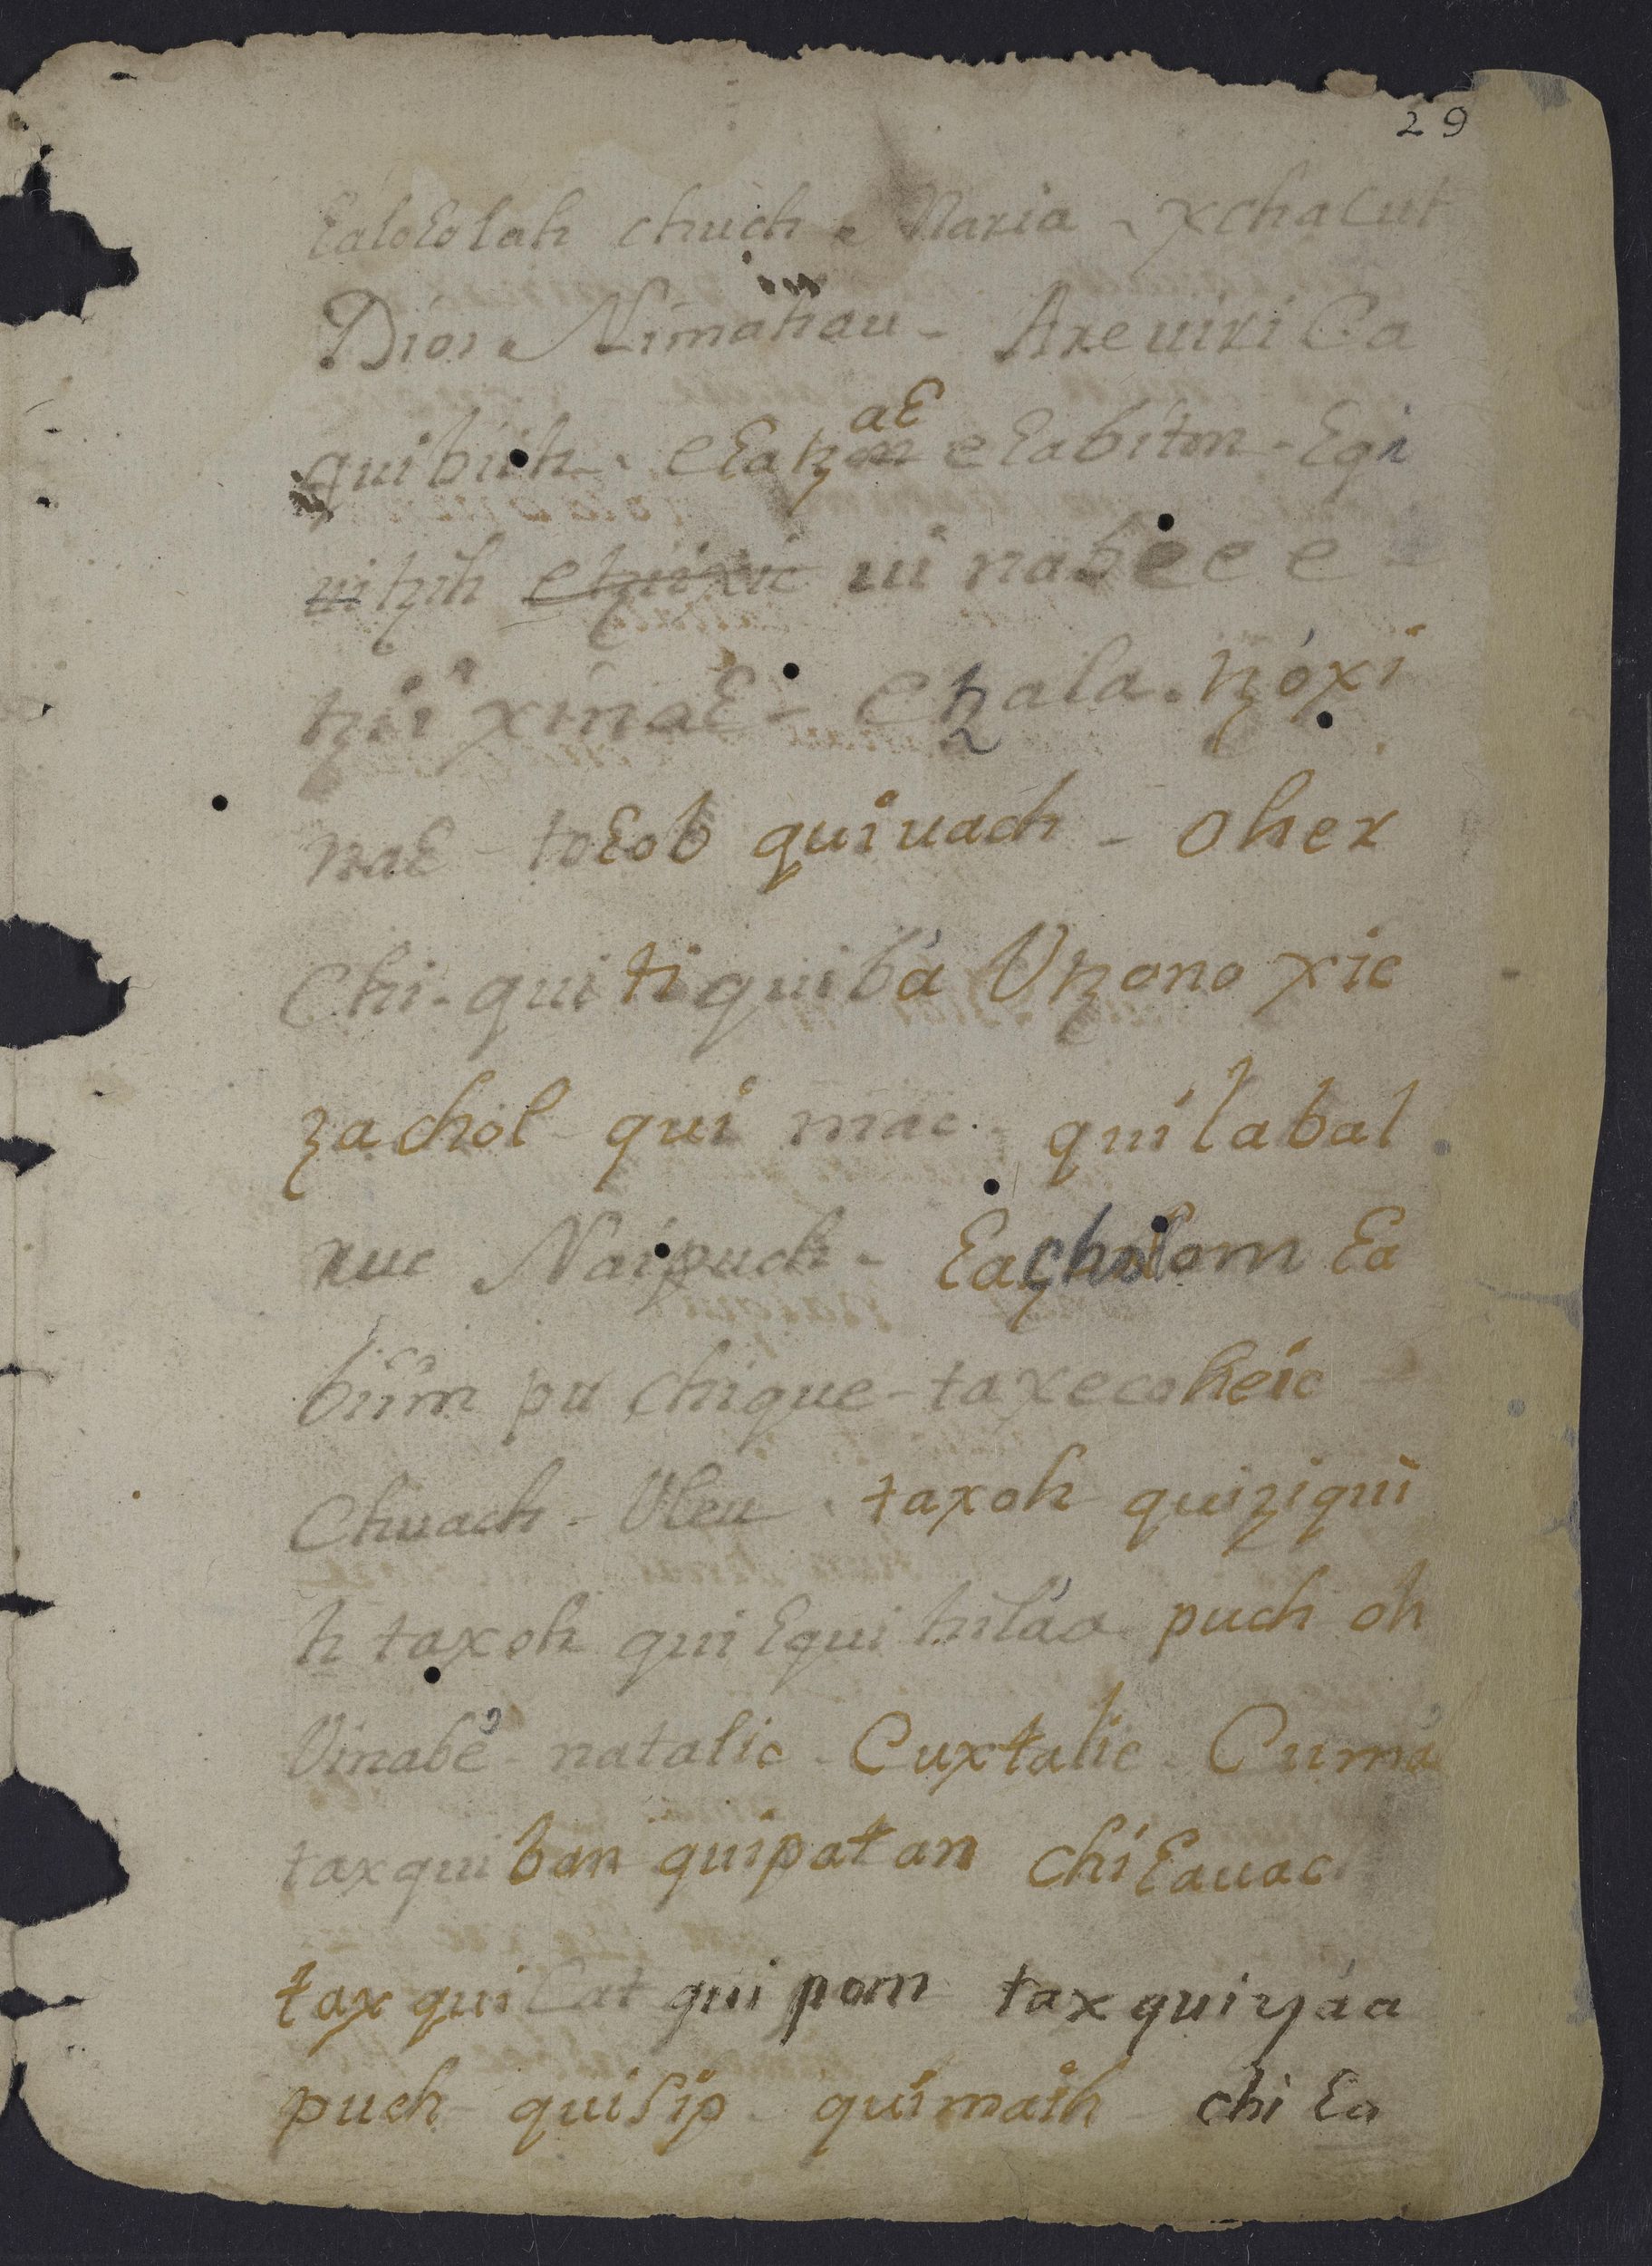 29
Ɛaloεolah chuch - Maria - xchacut
Dios Nimahau - Are uiri Ca
quibiih - e Ɛatz aε e Ɛabiton - Ɛqi
uitzih etzijxic ui nabe e e e
tzii xinaε - etzala . tzoxi
naε - toεob quiuach - oher
Chi - qui tiquibá Vtzonoxic
zachol qui mac - quilabal
ruc Naipuch - Ɛacholom Ɛa
biim pu chique - taxecoheic
Chuach - Uleu - taxoh quiziqui
h taxoh qui Ɛqui hiláa puch oh
Vinabé - natalic - Cuxtalic - Cumá
taxqui ban quipatan chi Ɛauac
tax qui Cat qui pom tax quiyáa
puch quisip quimaih chi Ɛa